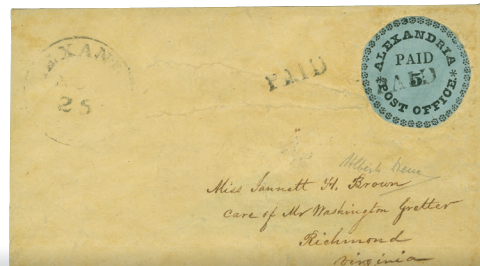 ALEXAN
25
PAID
ALEXANDRIA
PAID
5
POST OFFICE
PAID
Miss Jannett H. Brown
Care of Mr Washington Gretter
Richmond
Virginia